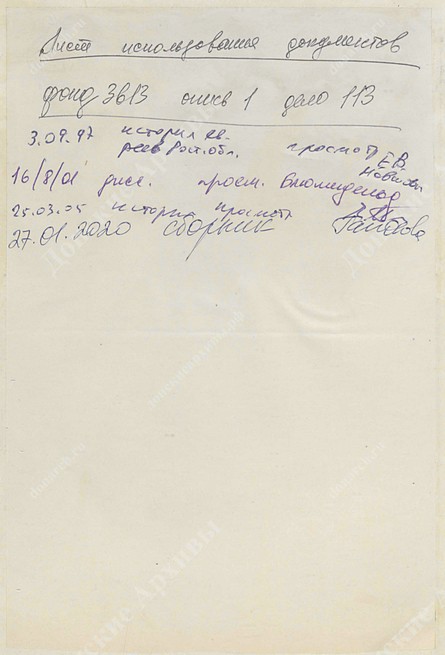 Лист использования документов
фонд 3613 опись 1 дело 113
3.09.97 история ев-
реев Рост.обл. просмотр Е.В.
16/8/01 дисс. просм.
25.03.05 история просмотр
27.01.2020 сборник